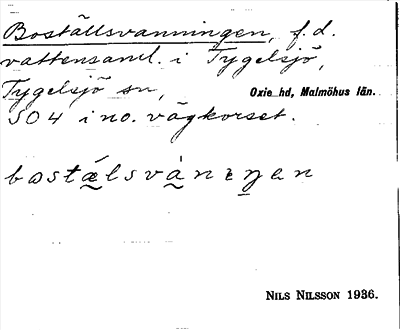 Boställsvanningen, f.d.
vattensaml. i Tygelsjö,
Tygelsjö sn, Oxie hd, Malmöhus län.
SO4 i no. vägkorset.
bostælsvànɪŋen
NILS NILSSON 1936.